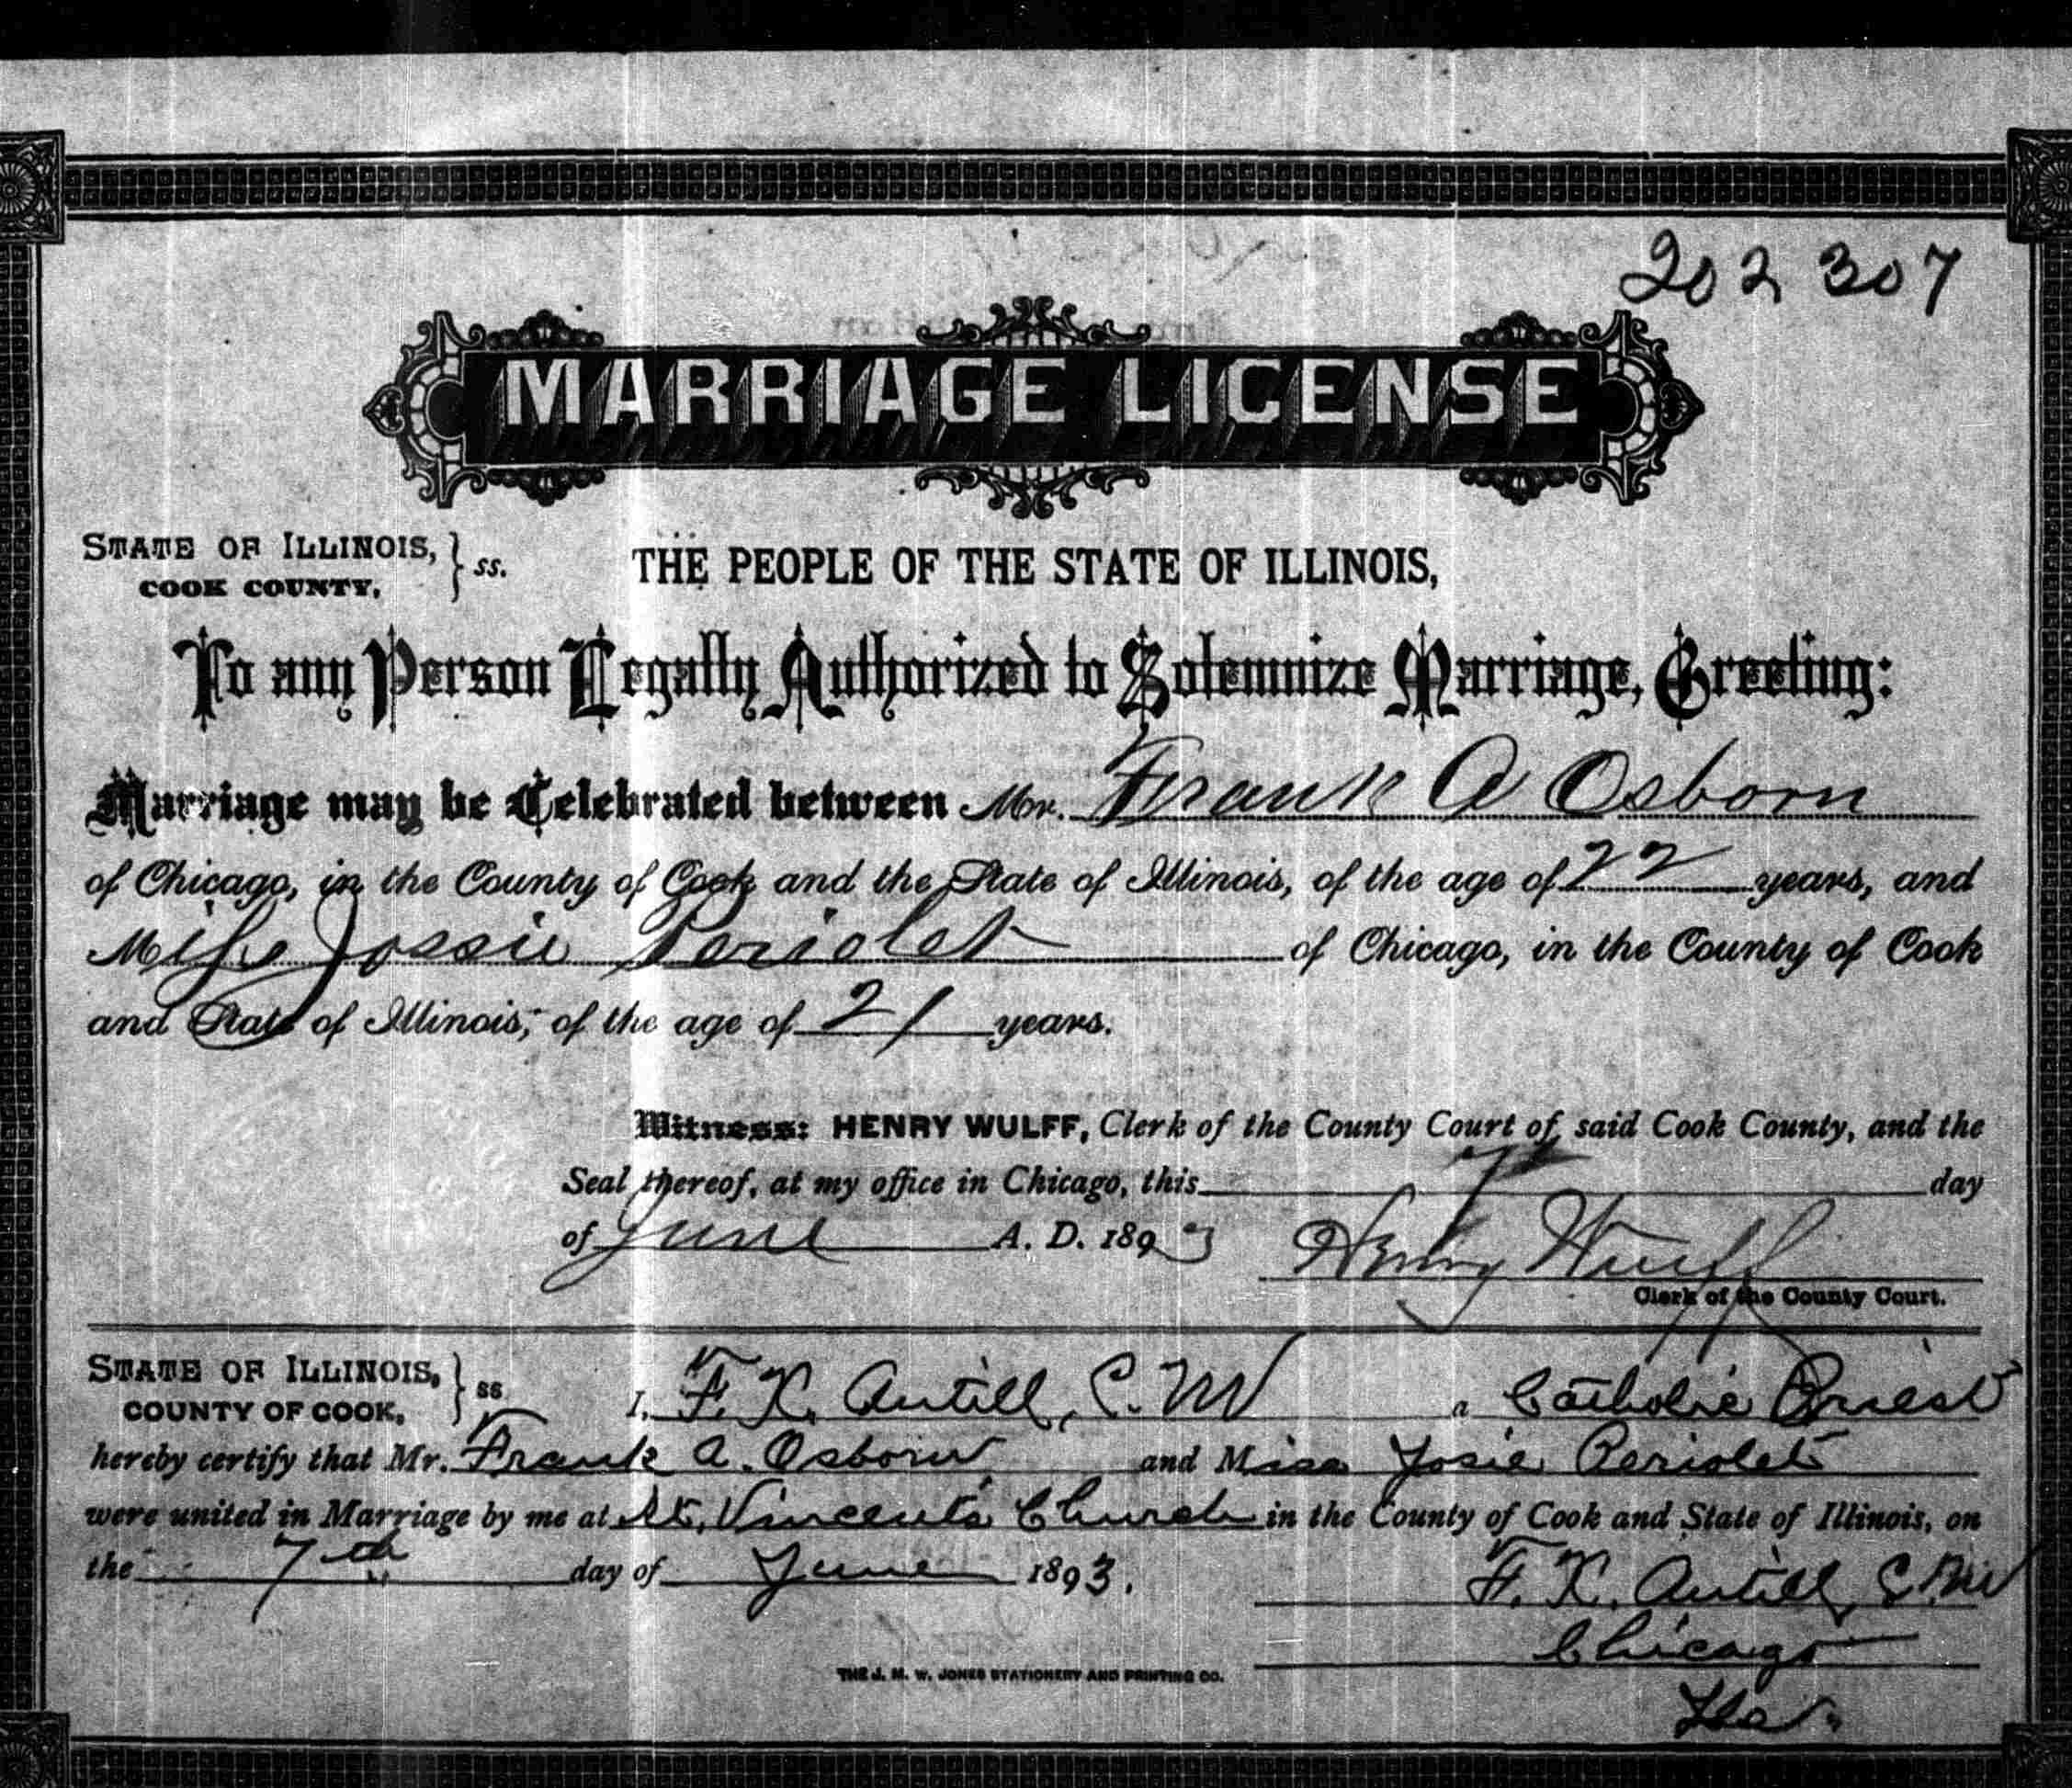 202 307
MARRIAGE LICENSE
STATE OF ILLINOIS, } ss. THE PEOPLE OF THE STATE OF ILLINOIS,
COOK COUNTY,
To any Person Legally Authorized to Solemnize Marriage, Greeting:
Marriage may be Celebrated between Mr. Frank A Osborn
of Chicago, in the County of Cook and the State of Illinois, of the age of 22 years, and
Miss Jossie Periolet of Chicago, in the County of Cook
and State of Illinois, of the age of 21 years.
Witness: HENRY WULFF, Clerk of the County Court of said Cook County, and the
Seal thereof, at my office in Chicago, this 7 day
of June A. D. 1893 Henry Wulff
Clerk of the County Court.
STATE OF ILLINOIS, } ss I, F. K. Antill, C. M a Catholic Priest
COUNTY OF COOK,
hereby certify that Mr. Frank A. Osborn and Miss Josie Periolet
were united in Marriage by me at St. Vincent's Church in the County of Cook and State of Illinois, on
the 7th day of June 1893. F. K. Antill, C. M
Chicago
Ills.
THE J. M. W. JONES STATIONERY AND PRINTING CO.